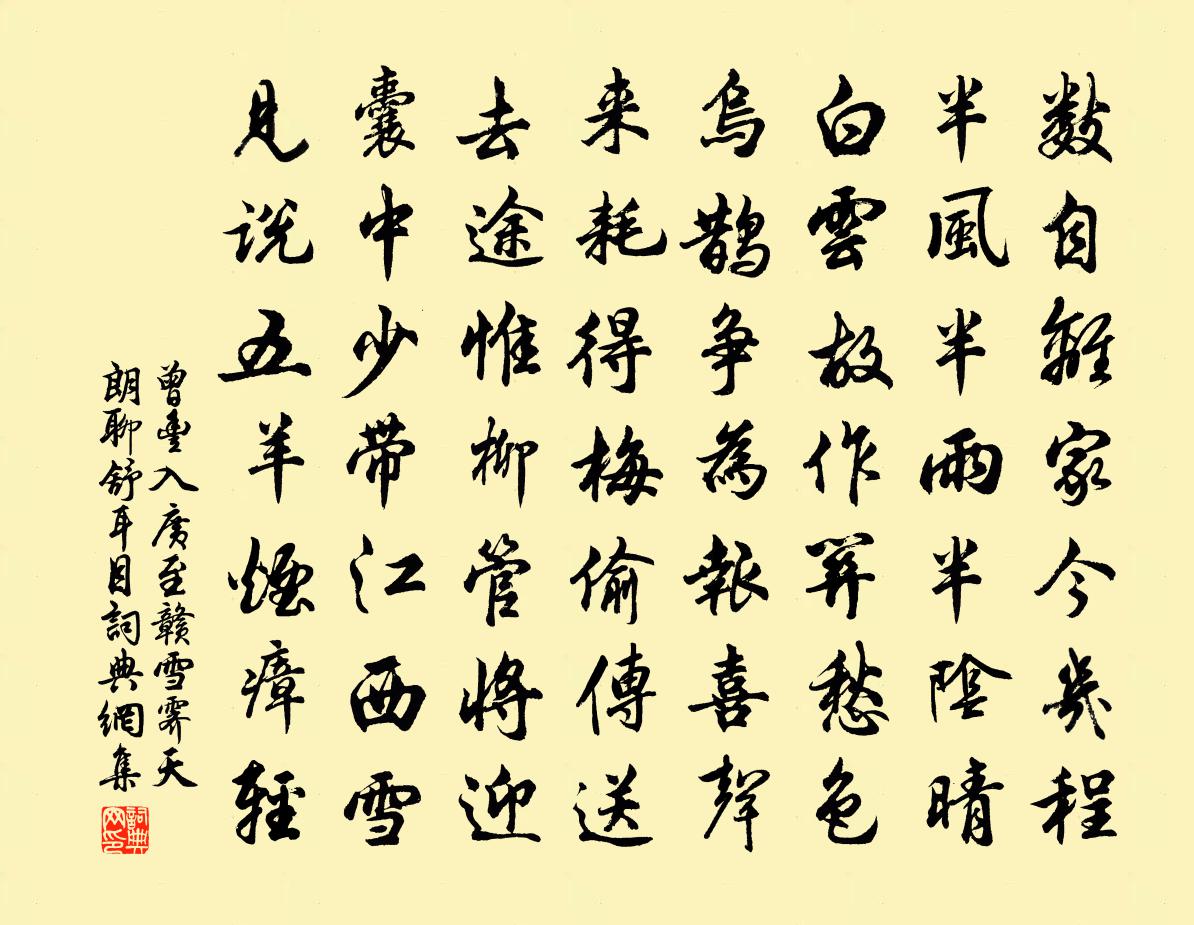 数自離家今幾程
半風半雨半陰晴
白雲故作羿愁色
烏鵲爭為報喜聲
来耗得梅偷傳送
去途惟柳管將迎
囊中少帶江西雪
見説五羊煙瘴輕
曾豊入廣至贛雪霽天
朗聊舒耳目詞典網集
詞典
网印